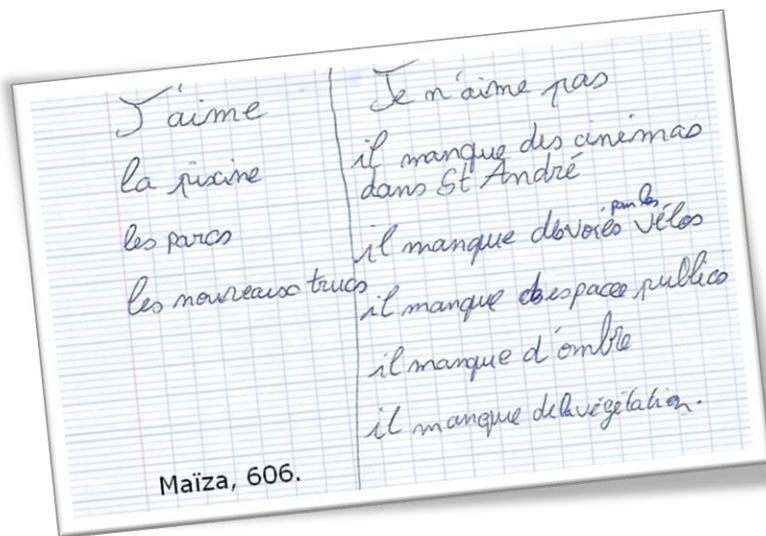 J'aime
la piscine
les parcs
les nouveaux trucs
Je n'aime pas
il manque des cinémas
dans St André
il manque des voies pour les vélos
il manque des espaces publics
il manque d'ombre
il manque de la végétation.
Maïza, 606.